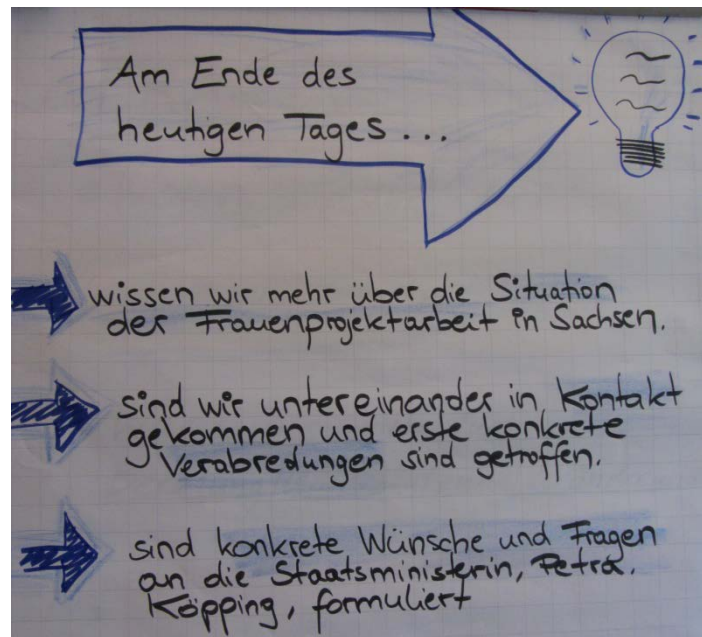 Am Ende des
heutigen Tages...
wissen wir mehr über die Situation
der Frauenprojektarbeit in Sachsen.
sind wir untereinander in Kontakt
gekommen und erste konkrete
Verabredungen sind getroffen.
sind konkrete Wünsche und Fragen
an die Staatsministerin, Petra.
Köpping, formuliert